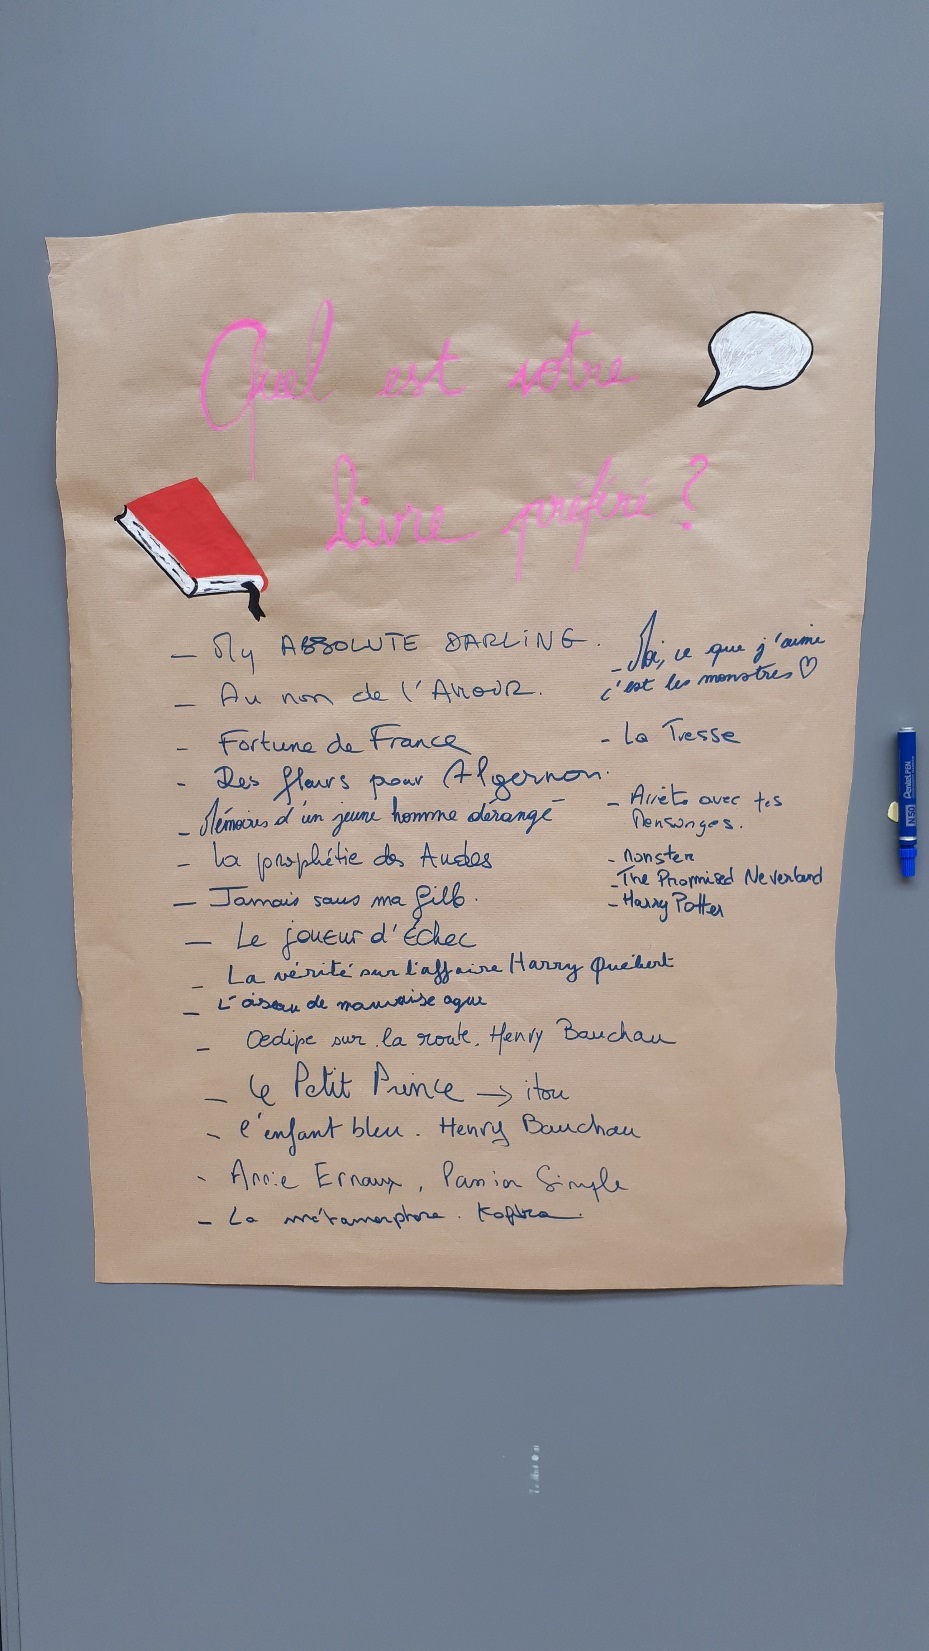 Quel est votre
livre préféré ?
- My ABSOLUTE DARLING.
- Au nom de l'AMOUR.
- Fortune de France
- Des fleurs pour Algernon.
- Mémoires d'un jeune homme dérangé
- La prophétie des Andes
- Jamais sans ma fille.
- Le joueur d'Échec
- La vérité sur l'affaire Harry Québert
- L'oiseau de mauvaise augure
- Oedipe sur la route. Henry Bauchau
- Le Petit Prince → itou
- l'enfant bleu. Henry Bauchau
- Annie Ernaux, Passion Simple
- La métamorphose. Kafka.
- Moi, ce que j'aime
c'est les monstres ♡
- La Tresse
- Arrête avec tes
Mensonges.
- Monster
- The Promised Neverland
- Harry Potter
PentelPEN
N50